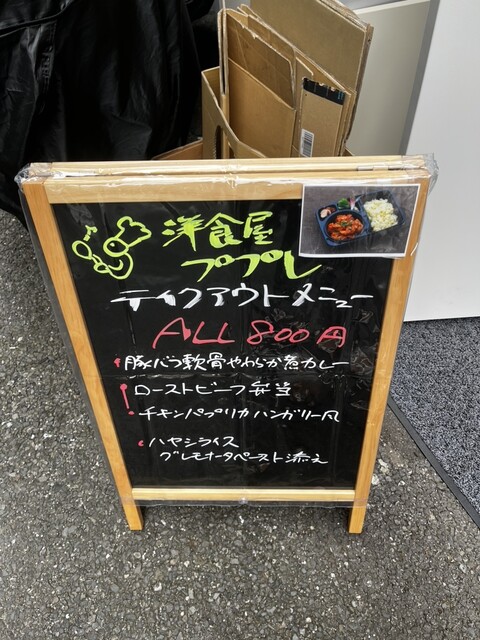 洋食屋
ププレ
テイクアウトメニュー
ALL 800円
豚バラ軟骨やわらか煮カレー
ローストビーフ弁当
チキンパプリカハンガリー風
ハヤシライス
グレモオータペースト添え